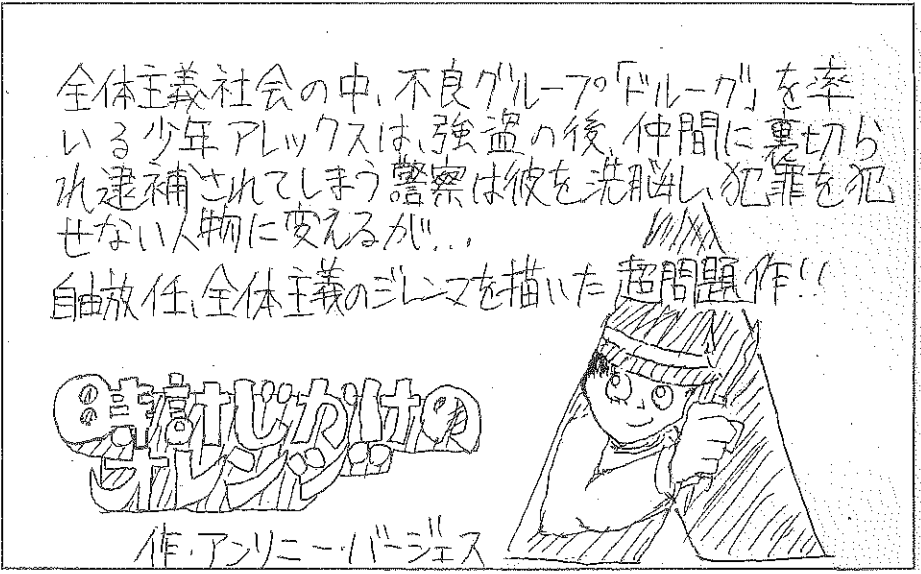 全体主義社会の中、不良グループ「ドルーグ」を率
いる少年アレックスは、強盗の後、仲間に裏切ら
れ逮補されてしまう警察は彼を洗脳し、犯罪を犯
せない人物に変えるが...
自由放任、全体主義のジレンマを描いた超問題作!!
時計じかけの
オレンジ
作・アンソニー・バージェス